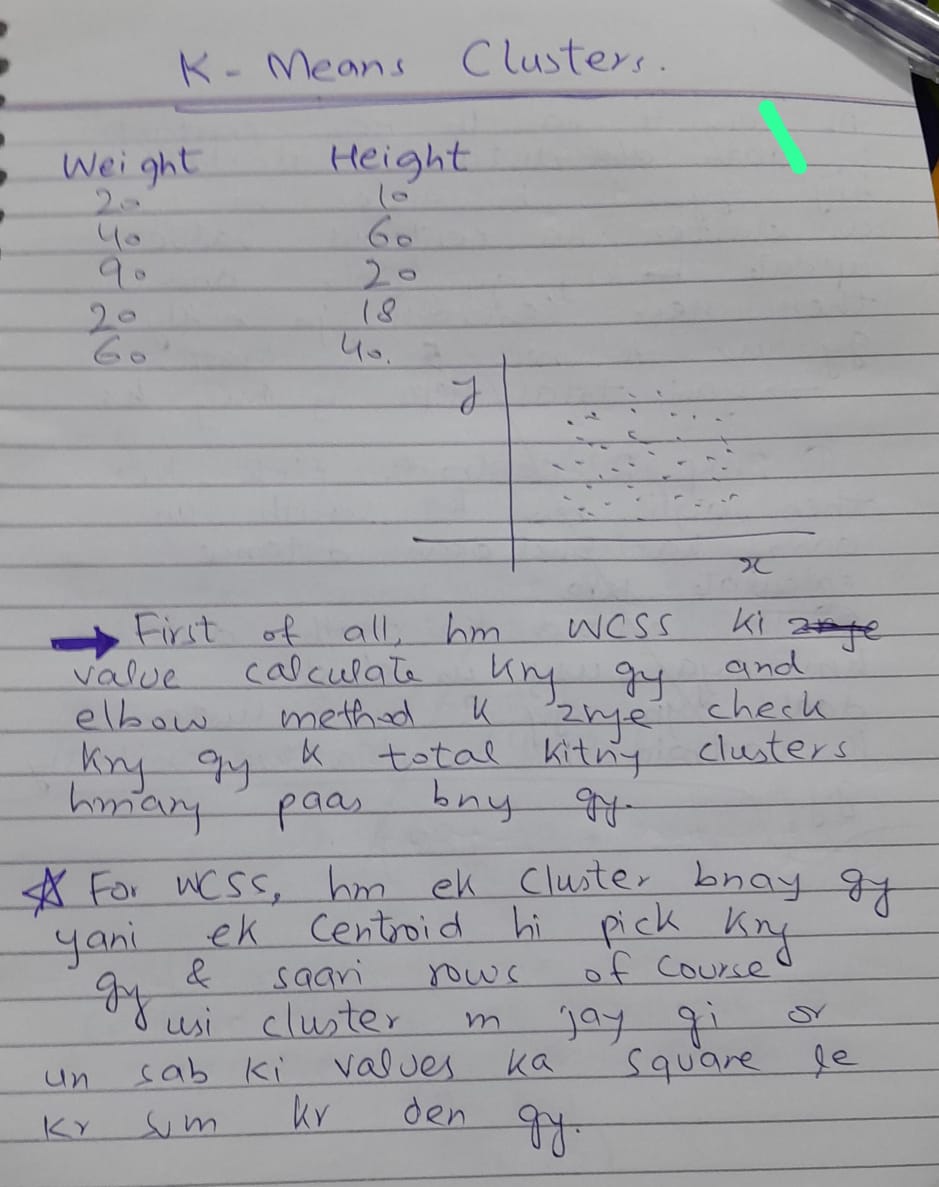 K- Means Clusters.
Weight Height
20 10
40 60
90 20
20 18
60 40.
y
x
→ First of all, hm WCSS ki
value calculate kry gy and
elbow method k zrye check
kry gy k total kitny clusters
hmary paas bny gy.
☆ For WCSS, hm ek Cluster bnay gy
yani ek Centroid hi pick kry
gy & saari rows of course
usi cluster m jay gi or
un sab ki values ka square le
kr sum kr den gy.